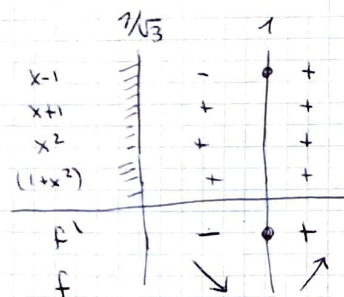 1/√3 1
x-1 - +
x+1 + +
x² + +
(1+x²) + +
f' - +
f ↘ ↗